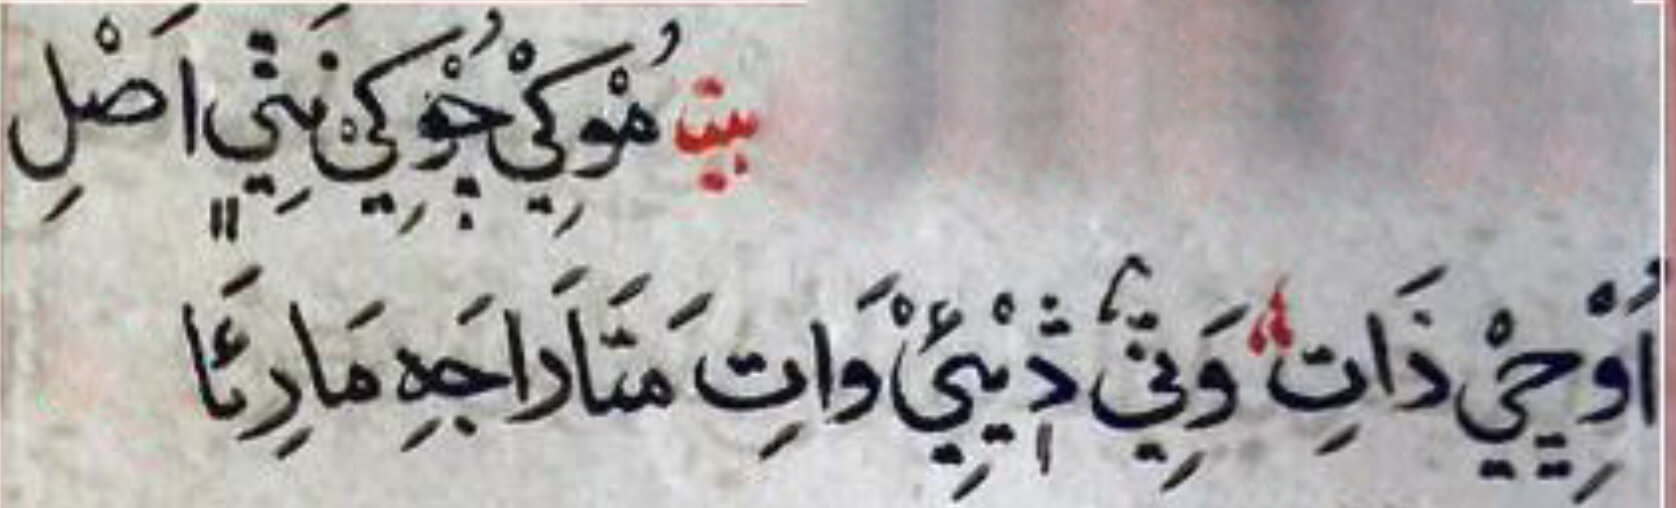 بيت مُوْكِيْ جُوْکِيْ نَتِيٍ اَصْلِ
اُوْچِيْ ذَاتِ وَتِيّ ڎِيْئِيْ وَاتِ مَتَارَاجَهِ مَارِئَا